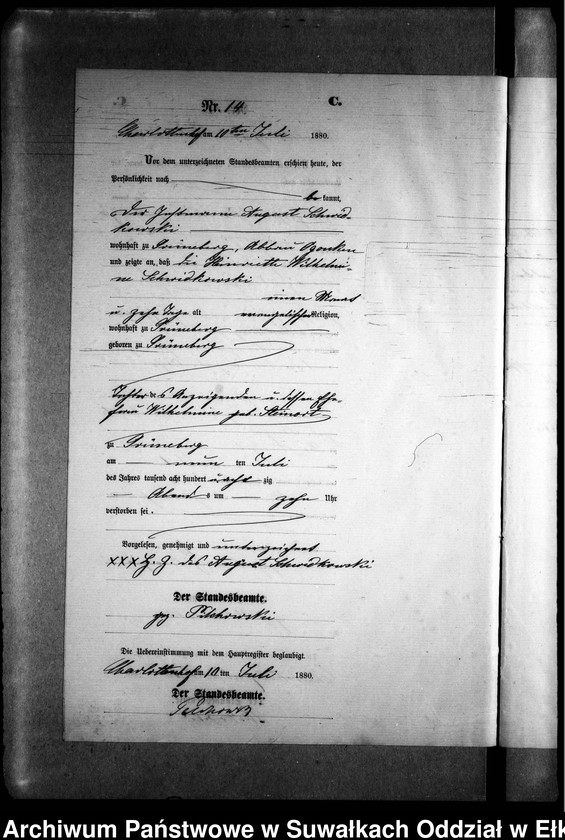 Nr. 14. C.
Charlottenhof am 10ten Juli 1880.
Vor dem unterzeichneten Standesbeamten erschien heute, der
Persönlichkeit nach
be kannt,
der Instmann August Schwid-
kowski
wohnhaft zu Grüneberg, Abbau
und zeigte an, daß die Heinriette Wilhelmi-
ne Schwidkowski
einen Monat
u. zehn Tage alt evangelischer Religion,
wohnhaft zu Grüneberg
geboren zu Grüneberg
Tochter des Anzeigenden u. dessen Ehe-
frau Wilhelmine geb. Steinort
zu Grüneberg
am neun ten Juli
des Jahres tausend acht hundert u. acht zig
Abends um zehn Uhr
verstorben sei.
Vorgelesen, genehmigt und unterzeichnet
XXX H. Z. des August Schwidkowski
Der Standesbeamte.
gez.
Die Uebereinstimmung mit dem Hauptregister beglaubigt.
Charlottenhof am 10 ten Juli 1880.
Der Standesbeamte.
Archiwum Państwowe w Suwałkach Oddział w Ełk